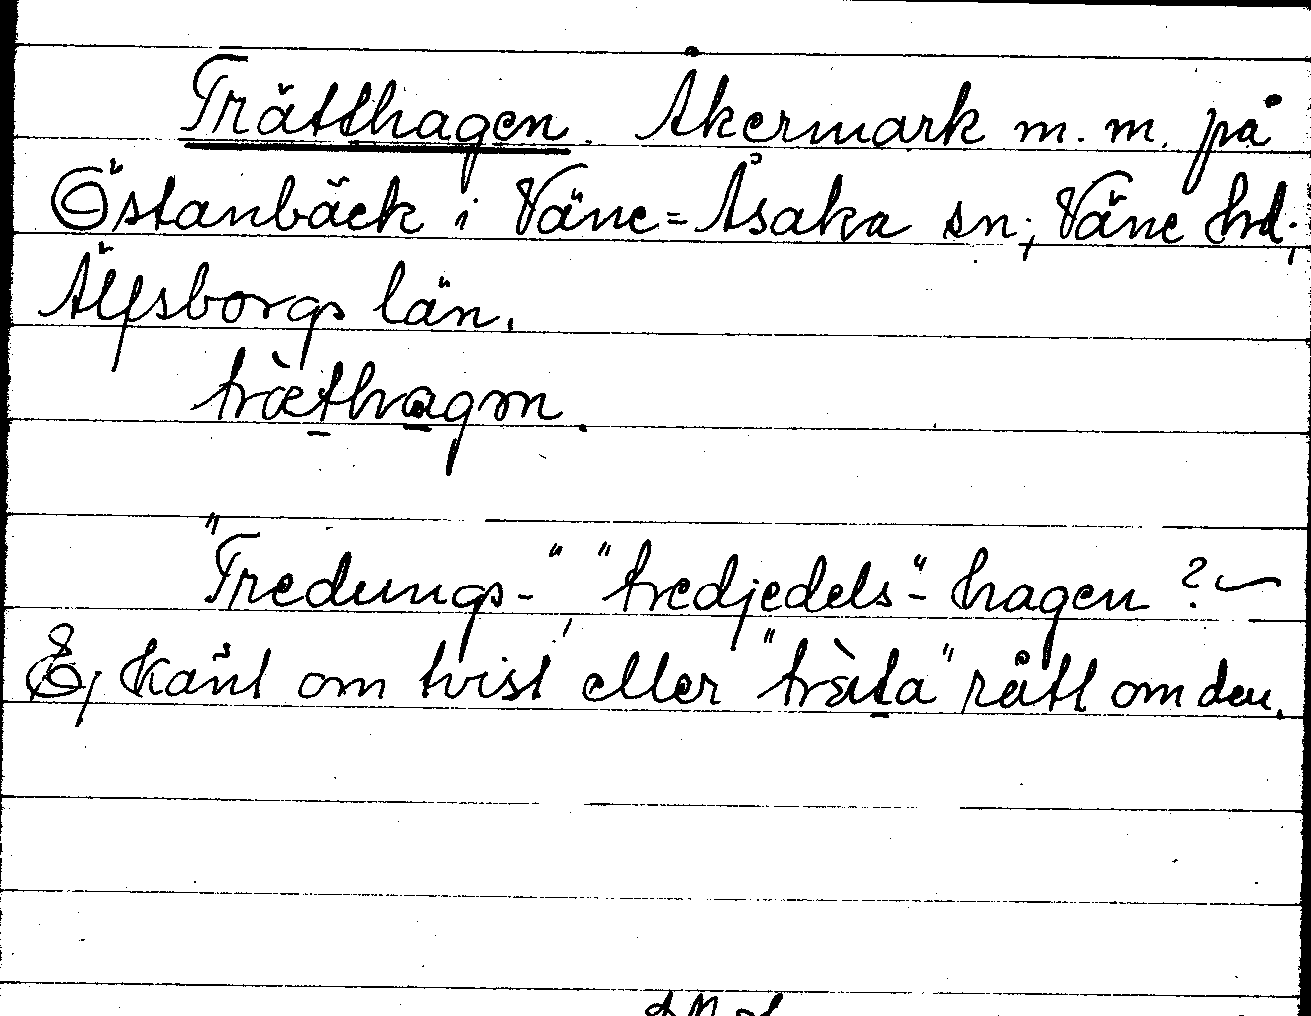 Trätthagen. Åkermark m. m. på
Östanbäck i Väne=Åsaka sn; Väne hd;
Älfsborgs län.
træ̀thagɷn.
"Tredungs-", "tredjedels"- hagen?
Ej känt om tvist eller "trä̀ta" rått om den.